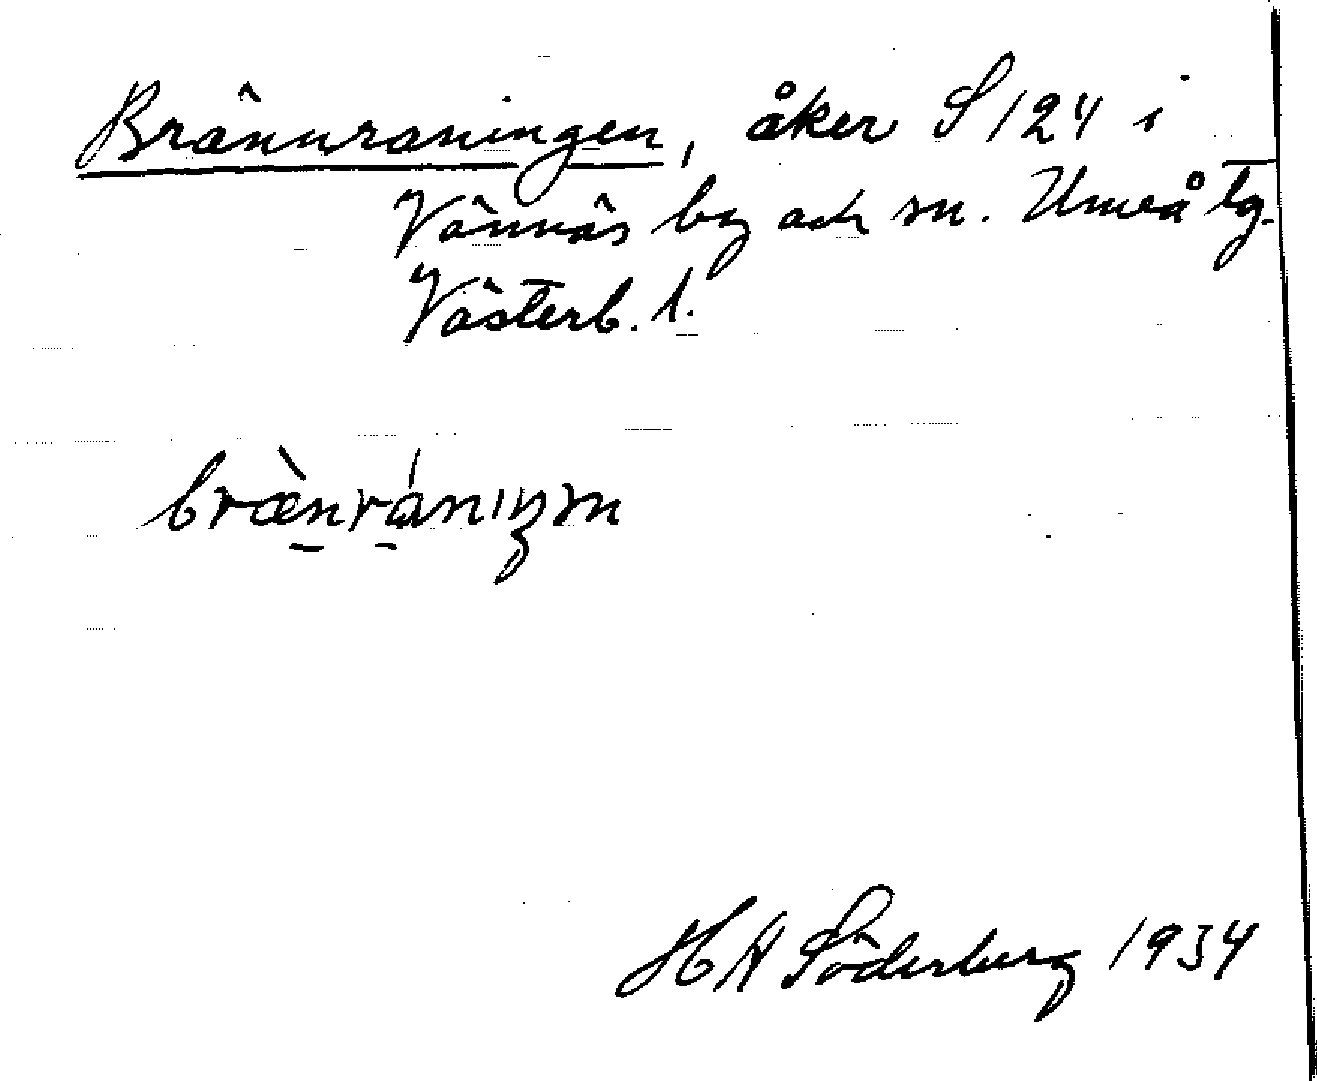 Brännraningen, åker S 124 i
Vännäs by och sn. Umeå tg.
Västerb. l.
brænrániŋm
H A Söderberg 1934